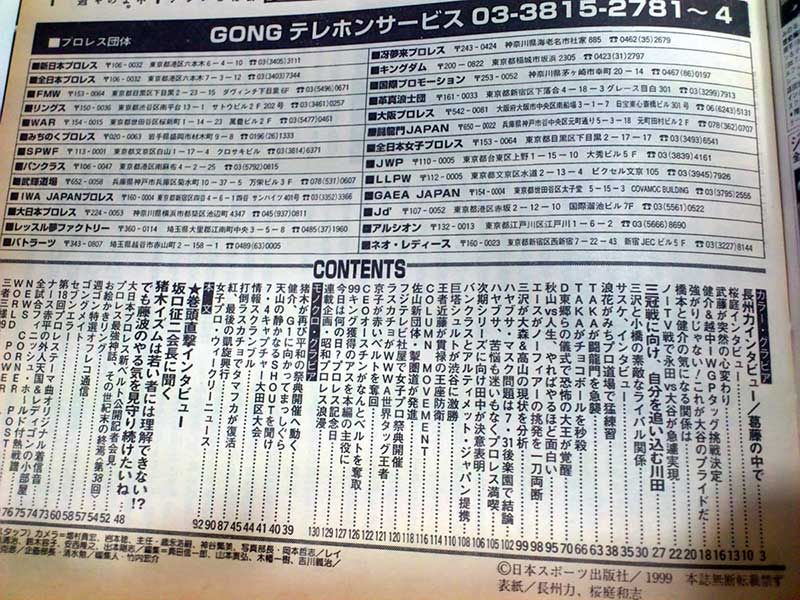 GONG テレホンサービス 03-3815-2781〜4
■プロレス団体
■新日本プロレス 〒106-0032 東京都港区六本木6-4-10 ☎03(3405)3111
■全日本プロレス 〒106-0032 東京都港区六本木7-3-12 ☎03(3403)7344
■FMW 〒153-0064 東京都目黒区下目黒2-23-15 ダヴィンチ下目黒6F ☎03(5496)0671
■リングス 〒150-0036 東京都渋谷区南平台13-1 サトウビル2F202号 ☎03(3461)0257
■WAR 〒154-0015 東京都世田谷区桜新町1-14-23 萬豊ビル2F ☎03(5477)0461
■みちのくプロレス 〒020-0063 岩手県盛岡市材木町9-8 ☎0196(26)1333
■SPWF 〒113-0001 東京都文京区白山1-17-4 クロサキビル ☎03(3814)6371
■パンクラス 〒106-0047 東京都港区南麻布4-2-25 ☎03(5792)0815
■武輝道場 〒652-0058 兵庫県神戸市兵庫区菊水町10-37-5 万栄ビル3F ☎078(531)0607
■IWA JAPANプロレス 〒160-0004 東京都新宿区四谷4-6-1四谷サンハイツ401号 ☎03(3352)3366
■大日本プロレス 〒224-0053 神奈川県横浜市都筑区池辺町4347 ☎045(937)0811
■レッスル夢ファクトリー 〒360-0114 埼玉県大里郡江南町中央3-5-8 ☎0485(37)1960
■バトラーツ 〒343-0807 埼玉県越谷市赤山町2-158-1 ☎0489(63)0005
■冴夢来プロレス 〒243-0424 神奈川県海老名市社家885 ☎0462(35)2679
■キングダム 〒200-0822 東京都稲城市坂浜2305 ☎0423(31)2797
■国際プロモーション 〒253-0052 神奈川県茅ヶ崎市幸町20-14 ☎0467(86)0197
■英真浪士団 〒161-0033 東京都新宿区下落合4-18-3グレース目白301 ☎03(3299)7913
■大阪プロレス 〒542-0081 大阪府大阪市中央区南船場3-1-7 日宝東心斎橋ビル301号 ☎06(6243)5131
■闘龍門JAPAN 〒650-0022 兵庫県神戸市中央区元町通り5-3-18 元町田村ビル2F ☎078(362)0707
■全日本女子プロレス 〒153-0064 東京都目黒区下目黒2-17-17 ☎03(3493)6541
■JWP 〒110-0005 東京都台東区上野1-15-10 大秀ビル5F ☎03(3839)4161
■LLPW 〒112-0005 東京都文京区水道2-13-4 ピクセル文京105 ☎03(3945)7926
■GAEA JAPAN 〒154-0004 東京都世田谷区太子堂5-15-3 COVAMCC BUNDING ☎03(3795)2555
■Jd' 〒107-0052 東京都港区赤坂2-12-10 国際溜池ビル7F ☎03(5561)0522
■アルシオン 〒132-0013 東京都江戸川区江戸川1-6-2 ☎03(5666)8690
■ネオ・レディース 〒160-0023 東京都新宿区西新宿7-22-43 新宿JECビル5F ☎03(3227)8144
CONTENTS
カラー・グラビア
長州力インタビュー/葛藤の中で 3
桜庭インタビュー 10
武藤が突然の心変わり 13
健介&越中IWGPタッグ挑戦決定 16
強がりじゃない!これが大谷のプライドだ 18
橋本と健介の気になる関係は 20
ノーTV戦で永田vs大谷が急遽実現 22
三冠戦に向け、自分を追い込む川田 27
サスケ、インタビュー 30
三沢と小橋の素敵なライバル関係 35
浪花がみちプロ道場で猛練習 38
TAKAが闘龍門を急襲 63
TAKAがチョコボールを秒殺 66
D東郷らの儀式で恐怖の大王が覚醒 70
秋山vs人生、やればやるほど面白い 95
エースがノーフィアーの挑発を一刀両断 98
三沢が大森&高山の現状を分析 99
ハヤブサ・マスク問題は7・31後楽園で結論 100
ハヤブサ、苦悩も迷いもなくプロレス満喫 102
次期シリーズに向け田中が決意表明 104
パンクラスとアルティメット・ジャパン提携 106
巨塔シュルトが渋谷に激勝 108
王者近藤が貫禄の王座防衛 110
COLUMN MOVEMENT 114
佐山新団体・掣圏道が発進 116
フジテレビ社屋で女子プロ祭典開催 120
アスカチカがWWWA世界タッグ王者 121
CEOアジャコングがなんとベルトを奪取
京子が赤いベルトを奪回 122
99キング獲得のアレを本編の主役に 126
今日は何の日?プロレス記念日 127
連載企画・昭和プロレス浪漫 129
モノクロ・グラビア
猪木が再び平和の祭典開催へ動く 130
健介、G1に向かってまっしぐら 39
天山の静かなるSHOUTを聞け 40
7・4スキャプチャー大田区大会 41
情報スクランブル 44
打倒ラスカチョでタマフカが復活 45
紅、最後の凱旋興行 87
女子プロ・ウィークリーニュース 90
本・文 92
★巻頭直撃インタビュー
坂口征二会長に聞く
猪木イズムは若い者には理解できない!?
でも藤波のやる気を見守り続けたいね 48
大日本プロレス・新ベルト公開記者会見 52
プロレス最強神話、その世紀末の終焉(第38回) 54
お絵かきリングサイド 57
週ゴン特選オフレコ通信 58
ゴングメイト 60
第18回ゴングラー 73
ナース赤平のテーマ曲オリジナル着信音 74
全試合フィニッシュホールド付熱戦譜 75
NEWS CORNER 76
WORLD POWER POST
©日本スポーツ出版社/1999 本誌無断転載禁ず
表紙/長州力、桜庭和志